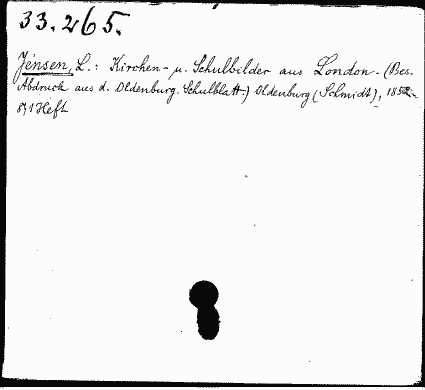 33.265.
Jensen, L.: Kirchen- u. Schulbilder aus London. (Bes.
Abdruck aus d. Oldenburg. Schulblatt.) Oldenburg (Schmidt),
8°, 1 Heft